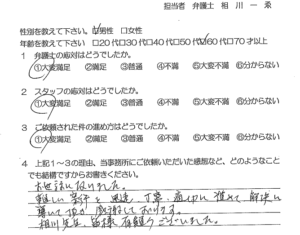 担当者 弁護士 相川一ゑ
性別を教えて下さい。☑男性 □女性
年齢を教えて下さい □20代□30代□40代□50代☑60代□70才以上
1 弁護士の応対はどうでしたか。
①大変満足 ②満足 ③普通 ④不満 ⑤大変不満 ⑥分からない
2 スタッフの応対はどうでしたか。
①大変満足 ②満足 ③普通 ④不満 ⑤大変不満 ⑥分からない
3 ご依頼された件の進め方はどうでしたか。
①大変満足 ②満足 ③普通 ④不満 ⑤大変不満 ⑥分からない
4 上記1～3の理由、当事務所にご依頼いただいた感想など、どのようなこと
でも結構ですからお書きください。
お世話になりました。
難しい案件を迅速、丁寧、適切に進めて解決に
導いて頂き感謝しております。
相川先生、皆様有難うございました。